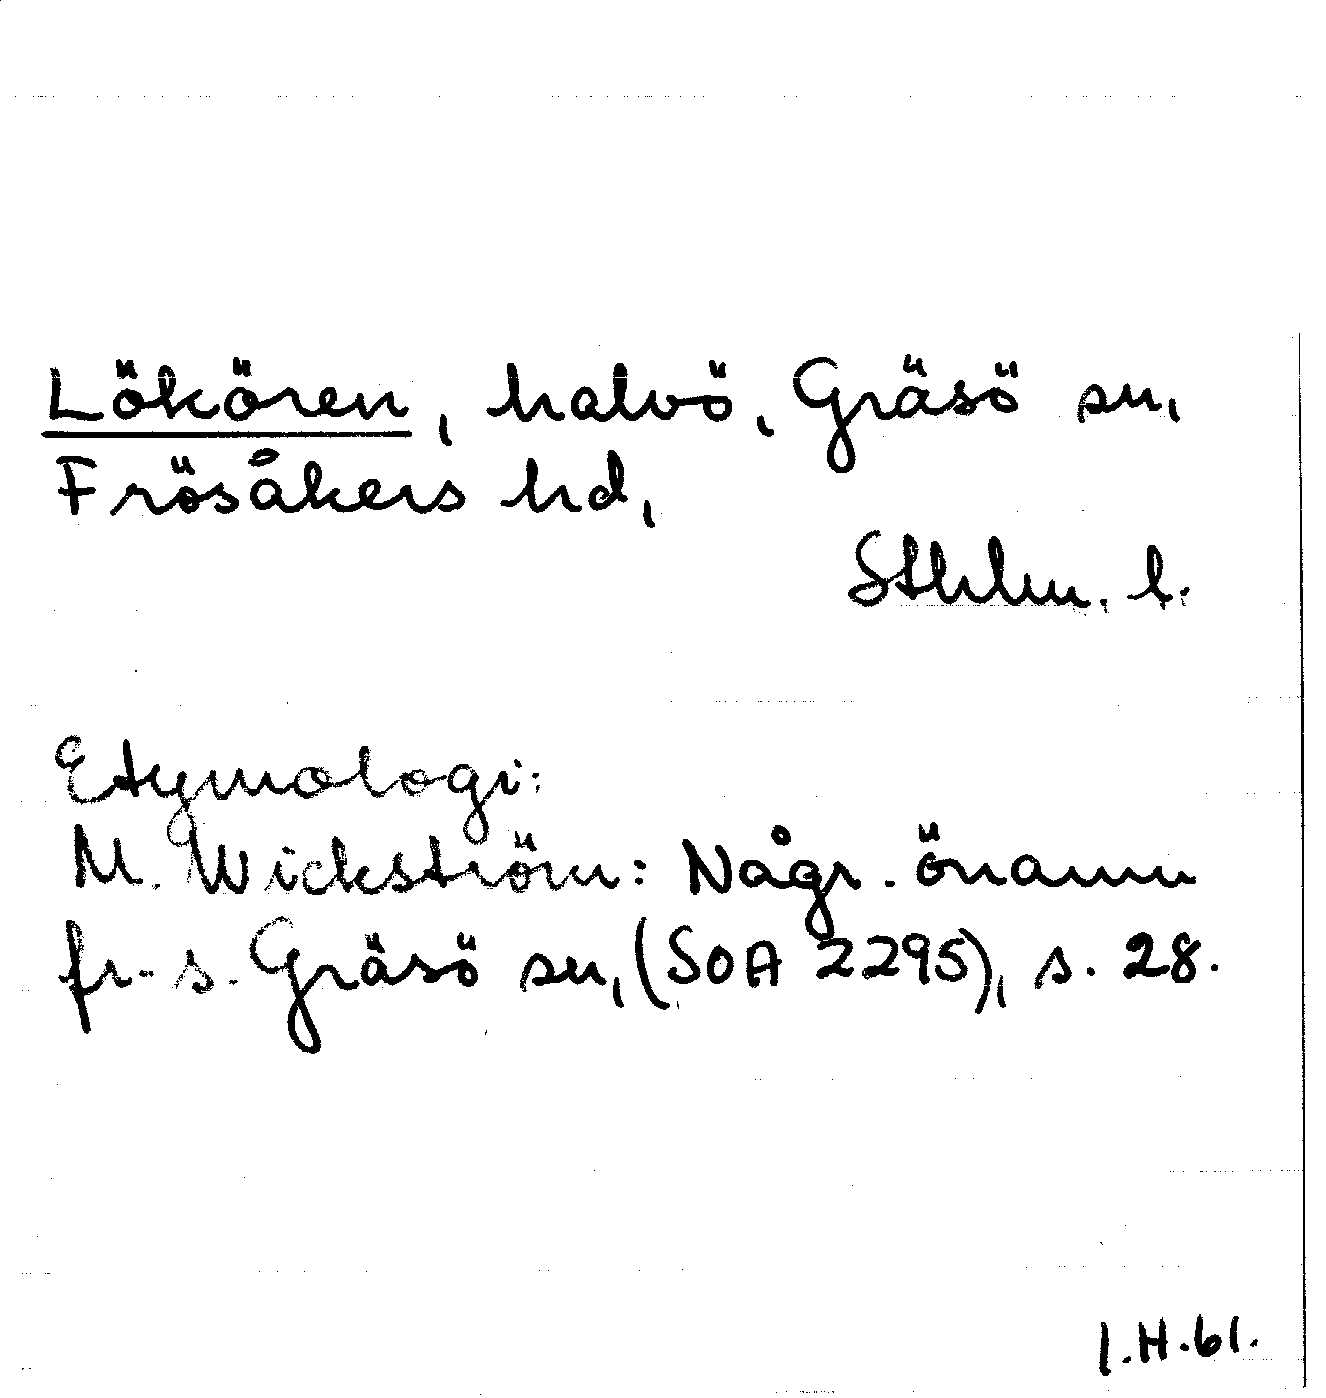 Lökören, halvö, Gräsö sn,
Frösåkers hd,
Sthlm. l.
Etymologi:
M. Wickström: Någr. önamn
fr. s. Gräsö sn, (SOA 2295), s. 28.
I.H.61.